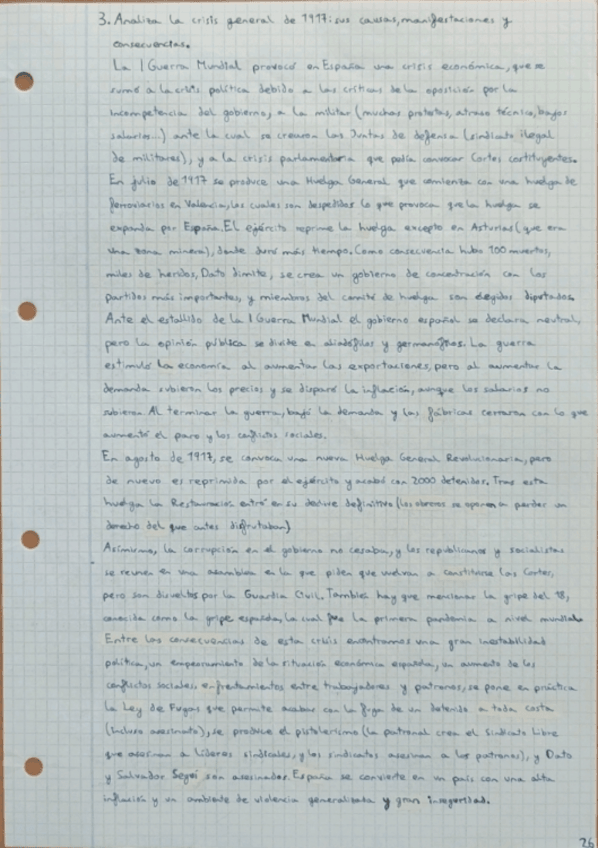 3. Analiza la crisis general de 1917: sus causas, manifestaciones y
consecuencias.
La I Guerra Mundial provocó en España una crisis económica, que se
sumó a la crisis política debido a las críticas de la oposición por la
incompetencia del gobierno, a la militar (muchas protestas, atraso técnico, bajos
salarios...) ante la cual se crearon las Juntas de defensa (sindicato ilegal
de militares), y a la crisis parlamentaria que pedía convocar Cortes constituyentes.
En julio de 1917 se produce una Huelga General que comienza con una huelga de
ferroviarios en Valencia, los cuales son despedidos lo que provoca que la huelga se
expanda por España. El ejército reprime la huelga excepto en Asturias (que era
una zona minera), donde duró más tiempo. Como consecuencia hubo 100 muertos,
miles de heridos, Dato dimite, se crea un gobierno de concentración con los
partidos más importantes, y miembros del comité de huelga son elegidos diputados.
Ante el estallido de la I Guerra Mundial el gobierno español se declara neutral,
pero la opinión pública se divide en aliadófilos y germanófilos. La guerra
estimuló la economía al aumentar las exportaciones, pero al aumentar la
demanda subieron los precios y se disparó la inflación, aunque los salarios no
subieron. Al terminar la guerra, bajó la demanda y las fábricas cerraron con lo que
aumentó el paro y los conflictos sociales.
En agosto de 1917, se convoca una nueva Huelga General Revolucionaria, pero
de nuevo es reprimida por el ejército y acabó con 2000 detenidos. Tras esta
huelga la Restauración entró en su declive definitivo (los obreros se oponen a perder un
derecho del que antes disfrutaban)
Asimismo, la corrupción en el gobierno no cesaba, y los republicanos y socialistas
se reunen en una asamblea en la que piden que vuelvan a constituirse las Cortes,
pero son disueltos por la Guardia Civil. También hay que mencionar la gripe del 18,
conocida como la gripe española, la cual fue la primera pandemia a nivel mundial.
Entre las consecuencias de esta crisis encontramos una gran inestabilidad
política, un empeoramiento de la situación económica española, un aumento de los
conflictos sociales, enfrentamientos entre trabajadores y patronos, se pone en práctica
la Ley de Fugas que permite acabar con la fuga de un detenido a toda costa
(incluso asesinato), se produce el pistolerismo (la patronal crea el Sindicato Libre
que asesinan a líderes sindicales, y los sindicatos asesinan a los patronos), y Dato
y Salvador Seguí son asesinados. España se convierte en un país con una alta
inflación y un ambiente de violencia generalizada y gran inseguridad.
26